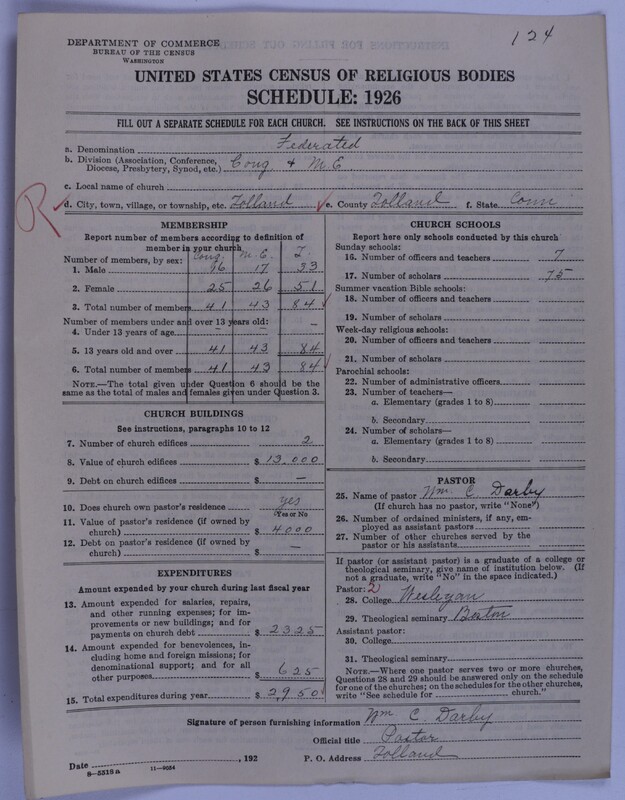 124
DEPARTMENT OF COMMERCE
BUREAU OF THE CENSUS
WASHINGTON
UNITED STATES CENSUS OF RELIGIOUS BODIES
SCHEDULE: 1926
FILL OUT A SEPARATE SCHEDULE FOR EACH CHURCH. SEE INSTRUCTIONS ON THE BACK OF THIS SHEET
a. Denomination Federated
b. Division (Association, Conference, Diocese, Presbytery, Synod, etc.) Cong & M.E
c. Local name of church
R
d. City, town, village, or township, etc. Tolland e. County Tolland f. State Conn
MEMBERSHIP
Report number of members according to definition of
member in your church
Cong. M.E. T
Number of members, by sex:
1. Male 16 17 33
2. Female 25 26 51
3. Total number of members 41 43 84
Number of members under and over 13 years old:
4. Under 13 years of age – –
5. 13 years old and over 41 43 84
6. Total number of members 41 43 84
NOTE.—The total given under Question 6 should be the
same as the total of males and females given under Question 3.
CHURCH BUILDINGS
See instructions, paragraphs 10 to 12
7. Number of church edifices 2
8. Value of church edifices $ 13,000
9. Debt on church edifices $ —
10. Does church own pastor's residence yes
Yes or No
11. Value of pastor's residence (if owned by
church) $ 4000
12. Debt on pastor's residence (if owned by
church) $ —
EXPENDITURES
Amount expended by your church during last fiscal year
13. Amount expended for salaries, repairs,
and other running expenses; for im-
provements or new buildings; and for
payments on church debt $ 2325
14. Amount expended for benevolences, in-
cluding home and foreign missions; for
denominational support; and for all
other purposes $ 625
15. Total expenditures during year $ 2950
CHURCH SCHOOLS
Report here only schools conducted by this church
Sunday schools:
16. Number of officers and teachers 7
17. Number of scholars 75
Summer vacation Bible schools:
18. Number of officers and teachers
19. Number of scholars
Week-day religious schools:
20. Number of officers and teachers
21. Number of scholars
Parochial schools:
22. Number of administrative officers
23. Number of teachers—
a. Elementary (grades 1 to 8)
b. Secondary
24. Number of scholars—
a. Elementary (grades 1 to 8)
b. Secondary
PASTOR
25. Name of pastor Wm. C. Darby
(If church has no pastor, write "None")
26. Number of ordained ministers, if any, em-
ployed as assistant pastors
27. Number of other churches served by the
pastor or his assistants
If pastor (or assistant pastor) is a graduate of a college or
theological seminary, give name of institution below. (If
not a graduate, write "No" in the space indicated.)
Pastor: 2
28. College Wesleyan
29. Theological seminary Boston
Assistant pastor:
30. College
31. Theological seminary
NOTE.—Where one pastor serves two or more churches,
Questions 28 and 29 should be answered only on the schedule
for one of the churches; on the schedules for the other churches,
write "See schedule for church."
Signature of person furnishing information Wm C. Darby
Official title Pastor
Date , 192 P. O. Address Tolland
8—5518a 11—9084